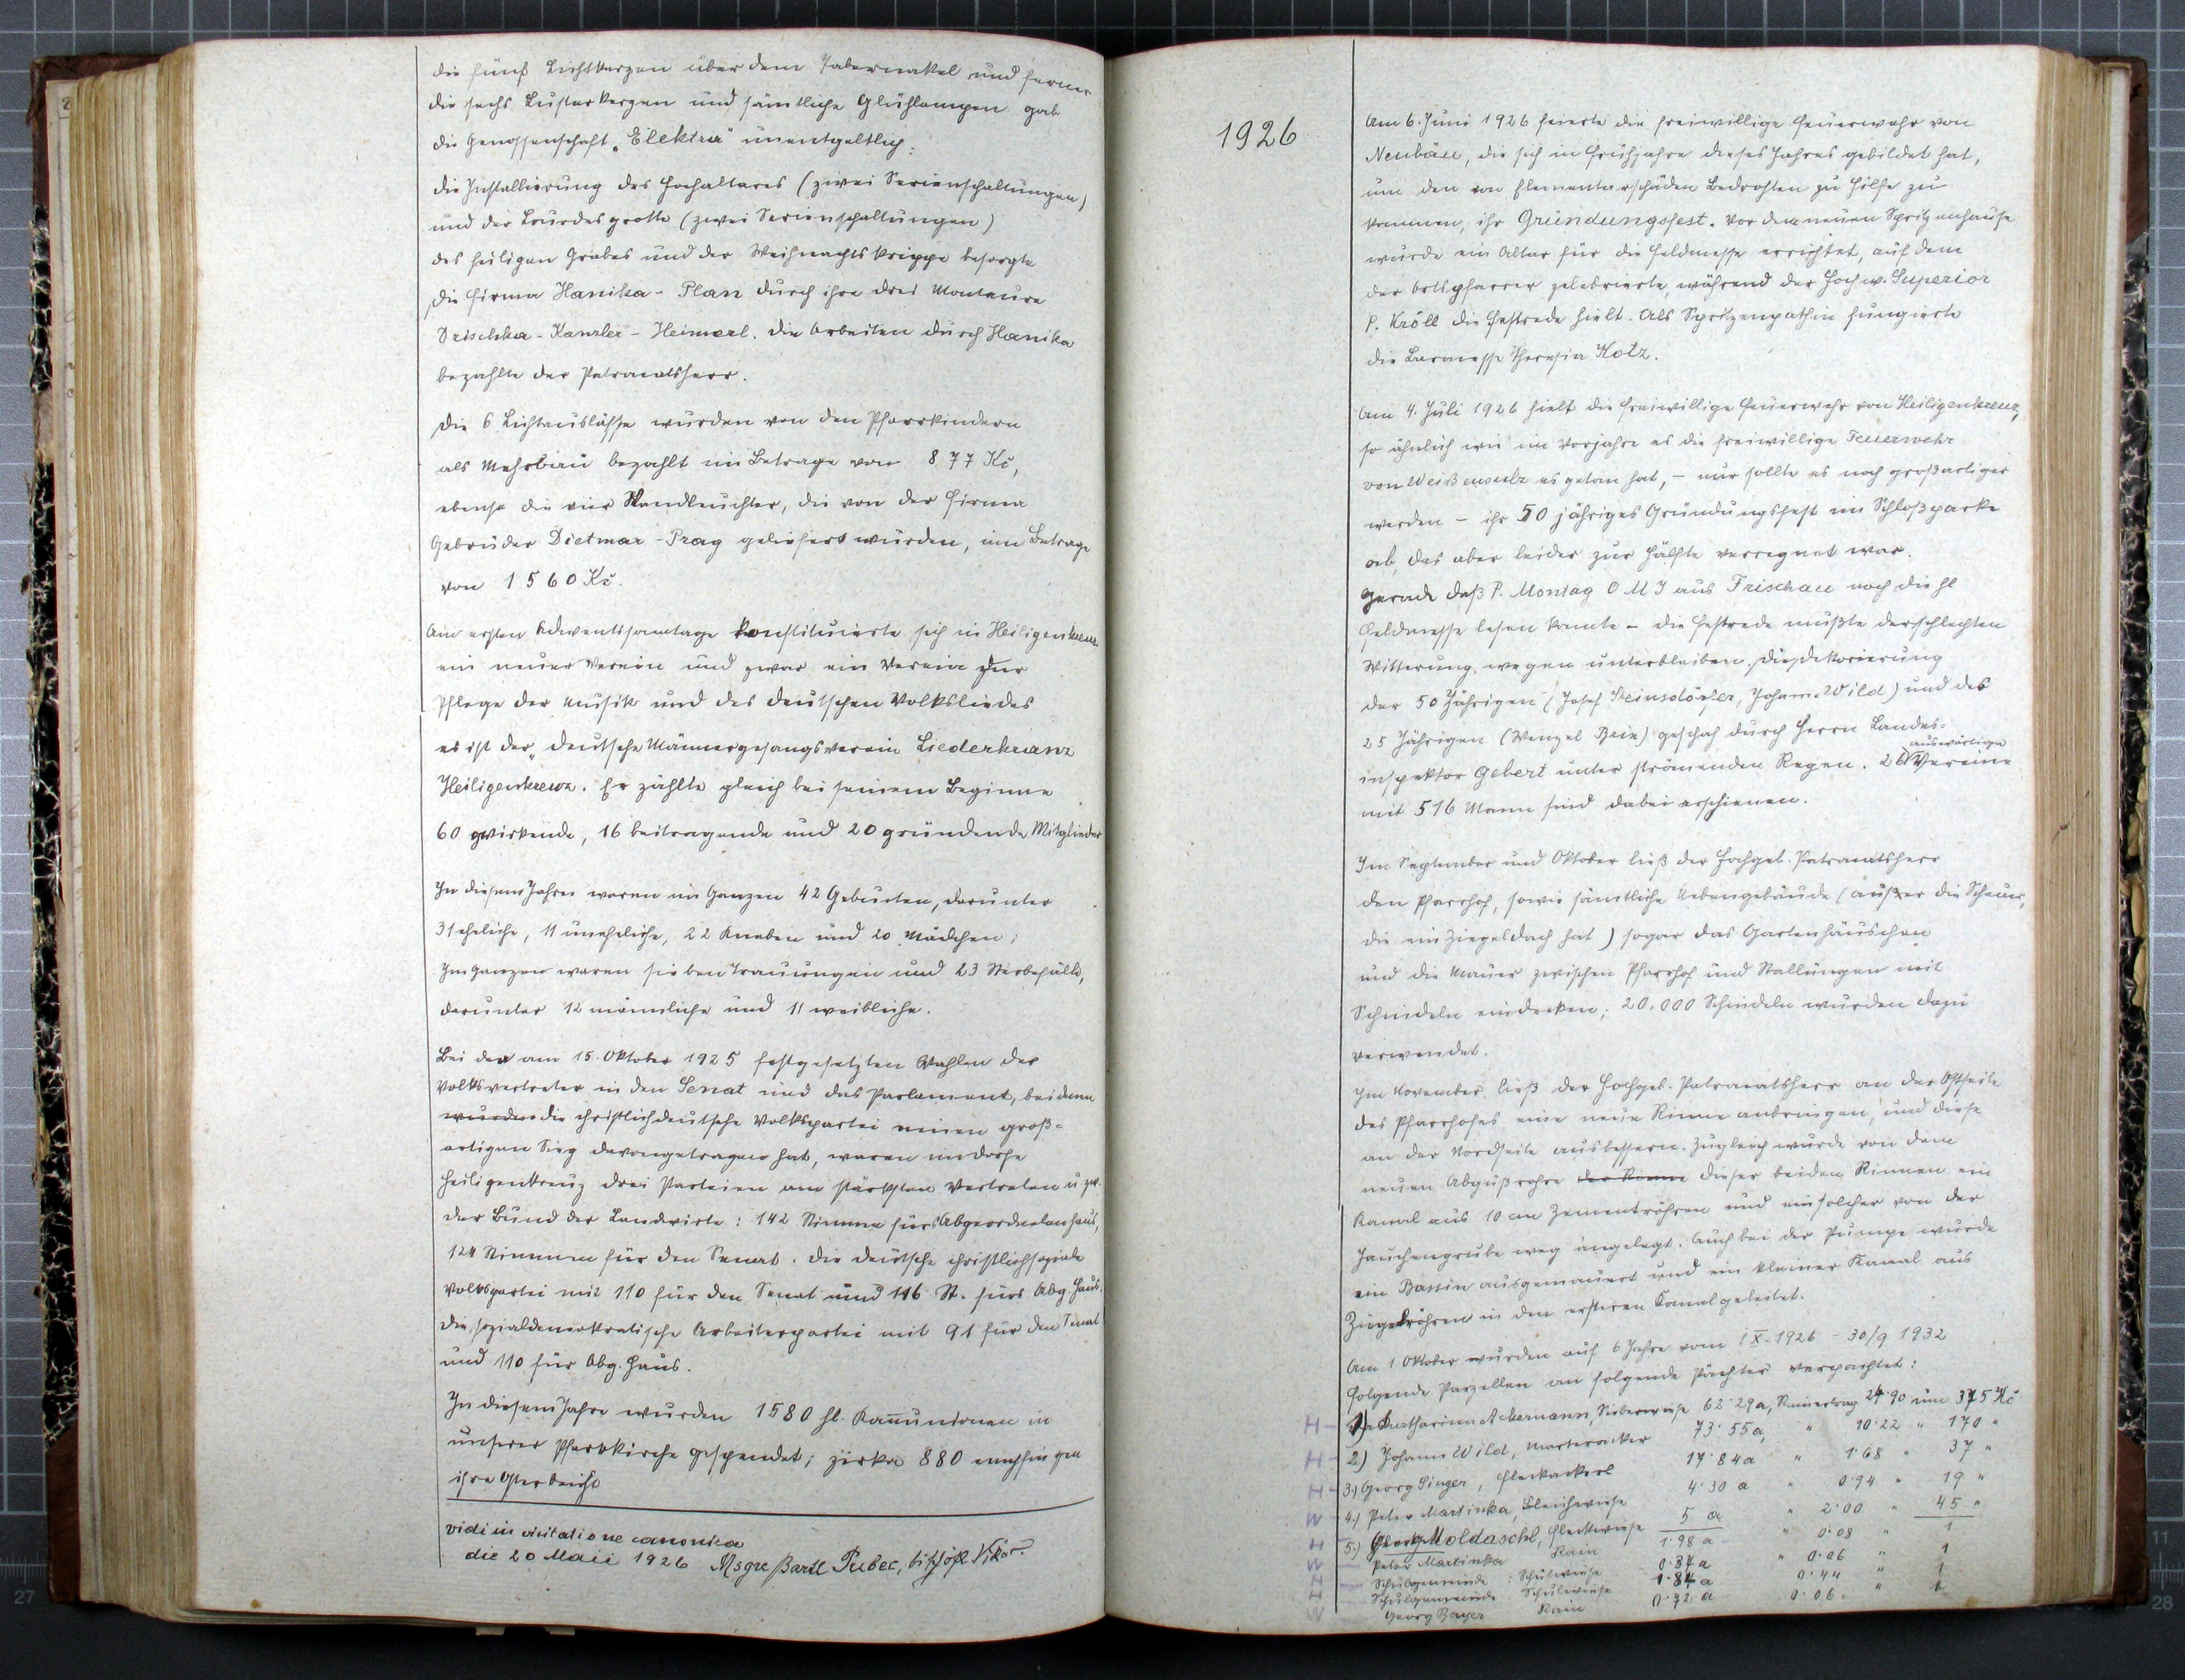 die fünf Lichtkerzen über dem Tabernakel und ferner
die sechs Lusterkerzen und sämtliche Glühlampen gab
die Genossenschaft „Elektra" unentgeltlich.
die Installierung des Hochaltares (zwei Serienschaltungen)
und der Lourdesgrotte (zwei Serienschaltungen)
des heiligen Grabes und der Weihnachtskrippe besorgte
die Firma Hanika - Plan durch ihre drei Monteure
Drischka - Kanzler - Heimerl. Die Arbeiten durch Hanika
bezahlte der Patronatsherr.
Die 6 Lichtauslässe wurden von den Pfarrkindern
als Mehrbau bezahlt im Betrage von 877 Kč,
ebenso die vier Wandleuchter, die von der Firma
Gebrüder Dietmar - Prag geliefert wurden, im Betrage
von 1560 Kč.
Am ersten Adventsonntage konstituierte sich in Heiligenkreuz
ein neuer Verein und zwar ein Verein zur
Pflege der Musik und des deutschen Volksliedes
es ist der „deutsche Männergesangsverein Liederkranz
Heiligenkreuz. Er zählte gleich bei seinem Beginne
60 wirkende, 16 beitragende und 20 gründende Mitglieder
In diesem Jahre waren im Ganzen 42 Geburten, darunter
31 eheliche, 11 uneheliche, 22 Knaben und 20 Mädchen;
Im ganzen waren sieben Trauungen und 23 Sterbefälle,
darunter 12 männliche und 11 weibliche.
Bei den am 15. Oktober 1925 festgesetzten Wahlen der
Volksvertreter in den Senat und das Parlament, bei denen
wurden die christlich deutsche Volkspartei einen groß-
artigen Sieg davongetragen hat, waren im Dorfe
Heiligenkreuz drei Parteien am stärksten vertreten u. zw.
der Bund der Landwirte: 142 Stimmen fürs Abgeordnetenhaus,
124 Stimmen für den Senat. Die deutsche christlichsoziale
Volkspartei mit 110 für den Senat und 116 St. fürs Abg. Haus.
die sozialdemokratische Arbeiterpartei mit 91 für den Senat
und 110 für Abg. Haus.
In diesem Jahre wurden 1580 hl. Kommunionen in
unserer Pfarrkirche gespendet; zirka 880 empfingen
ihre Osterbeicht
vidi in visitatione canonica
die 20 Maii 1926 Msgre Bartl Pubec, bischöfl. Vikar.
1926
Am 6. Juni 1926 feierte die freiwillige Feuerwehr von
Neubäu, die sich im Frühjahre dieses Jahres gebildet hat,
um den von Elementarschäden Bedrohten zu Hilfe zu
kommen, ihr Gründungsfest. Vor dem neuen Spritzenhause
wurde ein Altar für die Feldmesse errichtet, auf dem
der Ortspfarrer zelebrierte, während der Hochw. Superior
P. Kröll die Festrede hielt. Als Spritzenpathin fungierte
die Baronesse Theresia Kotz.
Am 4. Juli 1926 hielt die freiwillige Feuerwehr von Heiligenkreuz,
so ähnlich wie im Vorjahre es die freiwillige Feuerwehr
von Weißensulz es getan hat, – nur sollte es noch großartiger
werden – ihr 50 jähriges Gründungsfest im Schloßparke
ab, das aber leider zur Hälfte verregnet war.
Gerade daß P. Montag O M J aus Frischau noch die hl
Feldmesse lesen konnte – die Festrede mußte der schlechten
Witterung wegen unterbleiben. Die Dekorierung
der 50 Jährigen (Josef Steinsdörfer, Johann Wild) und des
25 Jährigen (Wenzel) geschah durch Herrn Landes-
inspektor Gebert unter strömenden Regen. 26 auswärtige Vereine
mit 516 Mann sind dabei erschienen.
Im September und Oktober ließ der Hochgeb. Patronatsherr
den Pfarrhof, sowie sämtliche Nebengebäude (außer die Scheuer,
die ein Ziegeldach hat) sogar das Gartenhäuschen
und die Mauer zwischen Pfarrhof und Stallungen mit
Schindeln eindecken; 20.000 Schindeln wurden dazu
verwendet.
Im November ließ der Hochgeb. Patronatsherr an der Ostseite
des Pfarrhofes eine neue Rinne anbringen, und diese
an der Nordseite ausbessern. Zugleich wurde von dem
neuen Abgußrohre der Rinne dieser beiden Rinnen ein
Kanal aus 10 cm Zementröhren und ein solcher von der
Jauchengrube weg angelegt. Auch bei der Pumpe wurde
ein Bassin ausgemauert und ein kleiner Kanal aus
Ziegelröhren in den ersteren Kanal geleitet.
Am 1 Oktober wurden auf 6 Jahre vom 1 X. 1926 - 30/9 1932
folgende Parzellen an folgende Pächter verpachtet:
H - 1) Katharina Ackermann, 62·29a, Reinertrag 24·90 um 375 Kč
H - 2) Johann Wild, 73·55a, " 10·22 " 170 "
H - 3.) Georg Singer, Fleckackerl 17·84a " 1·68 " 37 "
W - 4.) Peter Martinka, Bleichwiese 4·30 a " 0·94 " 19 "
H 5.) Moldaschl, Fleckwiese 5 a " 2·00 " 45 "
W Peter Martinka Rain 1·98 a " 0·08 " 1
H Schulgemeinde : Schulwiese 0·37 a " 0·06 " 1
H Schulgemeinde Schulwiese 1·84 a 0·44 " 1
W Georg Bayer Rain 0·72 a 0·06 " 1